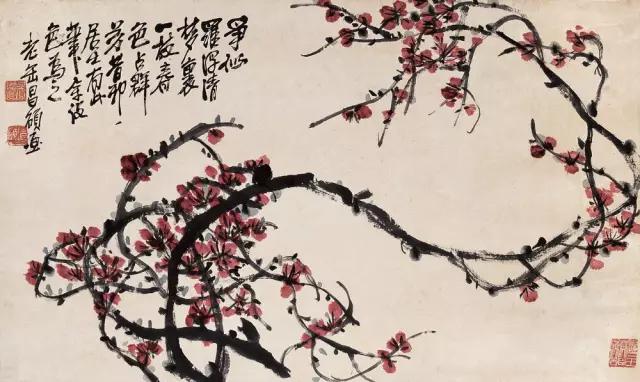 争似
羅浮清
夢裏
一枝春
色占群
芳昔邪
居士有此
筆余設
色為之
老缶昌碩画